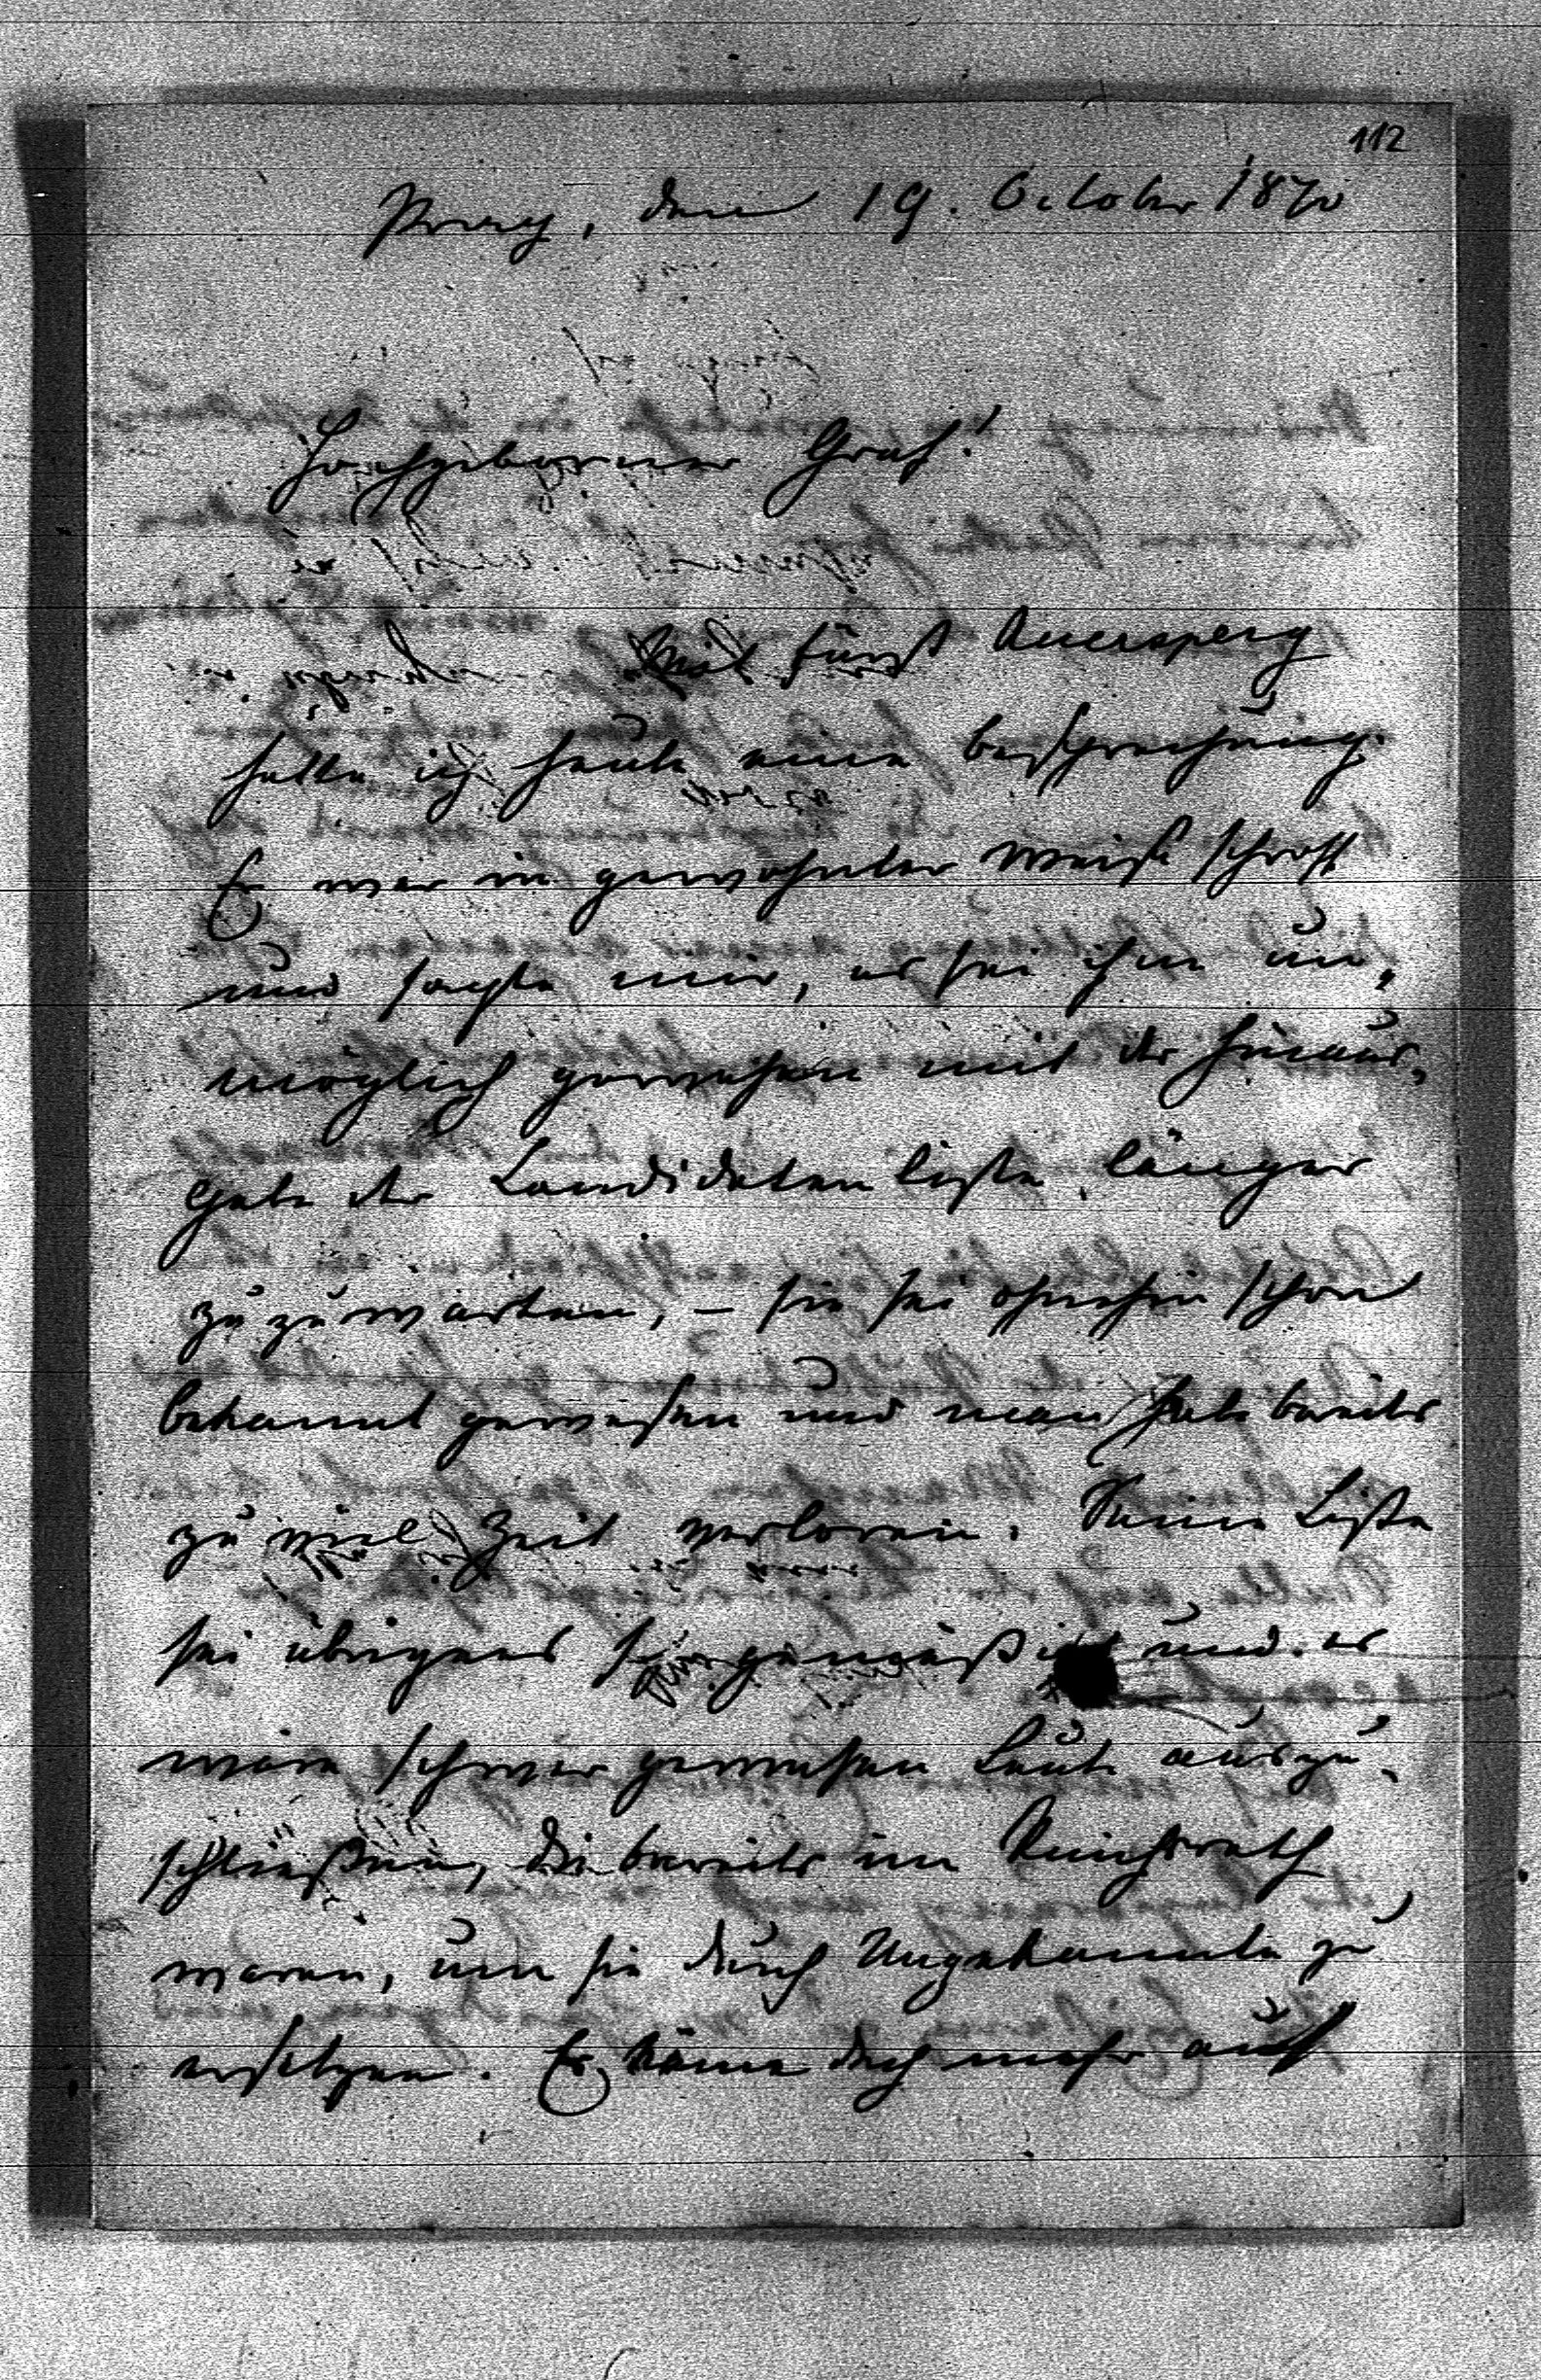 112
Prag, den 19. October 1870
Hochgeborner Graf!
Mit Fürst Auersperg
hatte ich heute eine Besprechung.
Er war in gewohnter Weise schroff
und sagte mir, es sei ihm un-
möglich gewesen mit der Hinaus-
gabe der Candidatenliste länger
zuzuwarten, – sie sei ohnehin schon
bekannt gewesen und man habe bereits
zu viel Zeit verloren. Seine Liste
sei übrigens sehr gemäßigt und es
wäre schwer gewesen Leute auszu-
schließen, die bereits im Reichsrath
waren, um sie durch Ungekannte zu
ersetzen. Er käme doch mehr auf